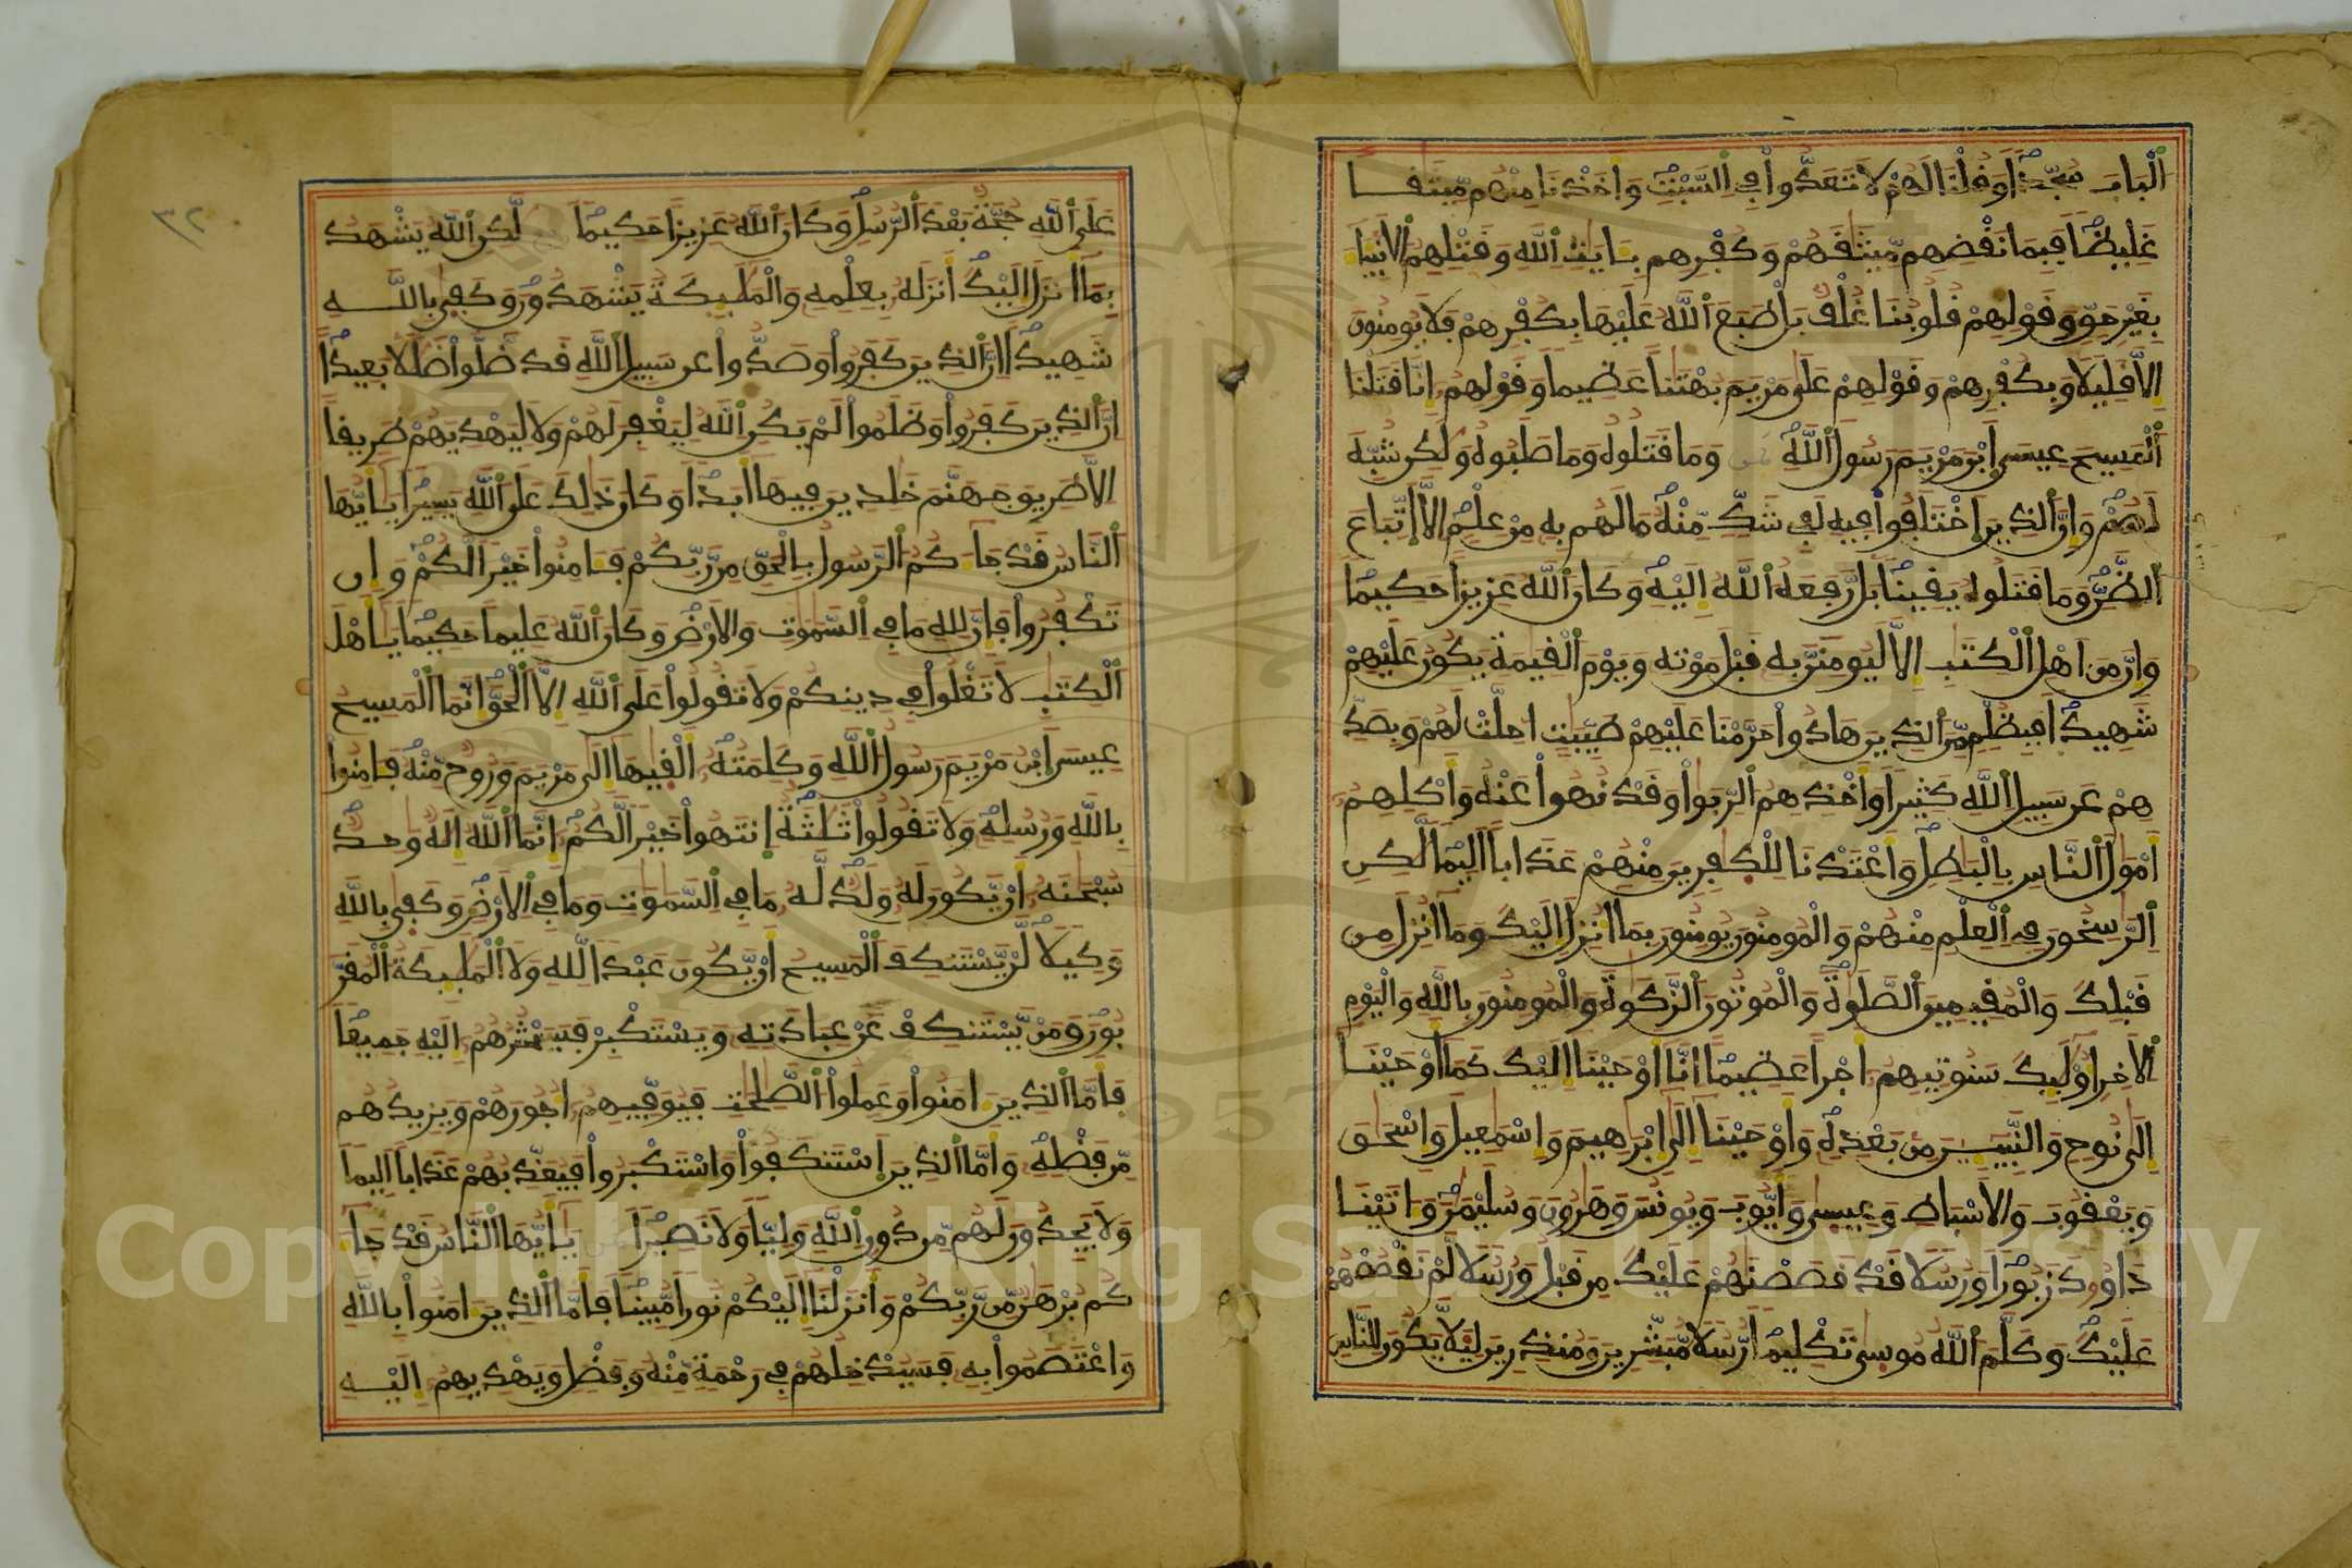 الباب سجدا وقلنا لهم لا تعدوا في السبت واخذنا منهم ميثقا
غليظا فبما نقضهم ميثقهم وكفرهم بـايت الله وقتلهم الانبيا
بغير حق وقولهم قلوبنا غلف بل طبع الله عليها بكفرهم فلا يومنون
الا قليلا وبكفرهم وقولهم على مريم بهتنا عظيما وقولهم انا قتلنا
المسيح عيسى ابن مريم رسول الله وما قتلوه وما صلبوه ولكن شبه
لهم وان الذين اختلفوا فيه لفي شك منه ما لهم به من علم الا اتباع
الظن وما قتلوه يقينا بل رفعه الله اليه وكان الله عزيزا حكيما
وان من اهل الكتب الا ليومنن به قبل موته ويوم القيمة يكون عليهم
شهيدا فبظلم من الذين هادوا حرمنا عليهم طيبت احلت لهم وبصد
هم عن سبيل الله كثيرا واخذهم الربوا وقد نهوا عنه واكلهم
امول الناس بالبطل واعتدنا للكفرين منهم عذابا اليما لكن
الرسخون في العلم منهم والمومنون يومنون بما انزل اليك وما انزل من
قبلك والمقيمين الصلوة والموتون الزكوة والمومنون بالله واليوم
الاخر اولىك سنوتيهم اجرا عظيما انا اوحينا اليك كما اوحينا
الى نوح والنبيين من بعده واوحينا الى ابرهيم واسمعيل واسحق
ويعقوب والاسباط وعيسى وايوب ويونس وهرون وسليمن واتينا
داوود زبورا ورسلا قد قصصنهم عليك من قبل ورسلا لم نقصصهم
عليك وكلم الله موسى تكليما رسلا مبشرين ومنذرين ليلا يكون للناس
٣٢
على الله حجة بعد الرسل وكان الله عزيزا حكيما لكن الله يشهد
بما انزل اليك انزله بعلمه والملىكة يشهدون وكفى بالله
شهيدا ان الذين كفروا وصدوا عن سبيل الله قد ضلوا ضللا بعيدا
ان الذين كفروا وظلموا لم يكن الله ليغفر لهم ولا ليهديهم طريقا
الا طريق جهنم خلدين فيها ابدا وكان ذلك على الله يسيرا يـايها
الناس قد جاكم الرسول بالحق من ربكم فـامنوا خيرا لكم وان
تكفروا فان لله ما في السموت والارض وكان الله عليما حكيما يـاهل
الكتب لا تغلوا في دينكم ولا تقولوا على الله الا الحق انما المسيح
عيسى ابن مريم رسول الله وكلمته القيها الى مريم وروح منه فـامنوا
بالله ورسله ولا تقولوا ثلثة انتهوا خيرا لكم انما الله اله وحد
سبحنه ان يكون له ولد له ما في السموت وما في الارض وكفى بالله
وكيلا لن يستنكف المسيح ان يكون عبدا لله ولا الملىكة المقر
بون ومن يستنكف عن عبادته ويستكبر فسيحشرهم اليه جميعا
فاما الذين امنوا وعملوا الصلحت فيوفيهم اجورهم ويزيدهم
من فضله واما الذين استنكفوا واستكبروا فيعذبهم عذابا اليما
ولا يجدون لهم من دون الله وليا ولا نصيرا يـايها الناس قد جا
كم برهن من ربكم وانزلنا اليكم نورا مبينا فاما الذين امنوا بالله
واعتصموا به فسيدخلهم في رحمة منه وفضل ويهديهم اليه
Copyright © King Saud University